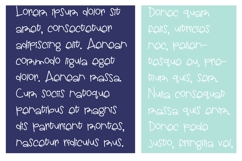 Lorem ipsum dolor sit
amet, consectetuer
adipiscing elit. Aenean
commodo ligula eget
dolor. Aenean massa.
Cum sociis natoque
penatibus et magnis
dis parturient montes,
nascetur ridiculus mus.
Donec quam
felis, ultricies
nec, pellen-
tesque eu, pre-
tium quis, sem.
Nulla consequat
massa quis enim.
Donec pede
justo, fringilla vel,